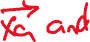 xa and